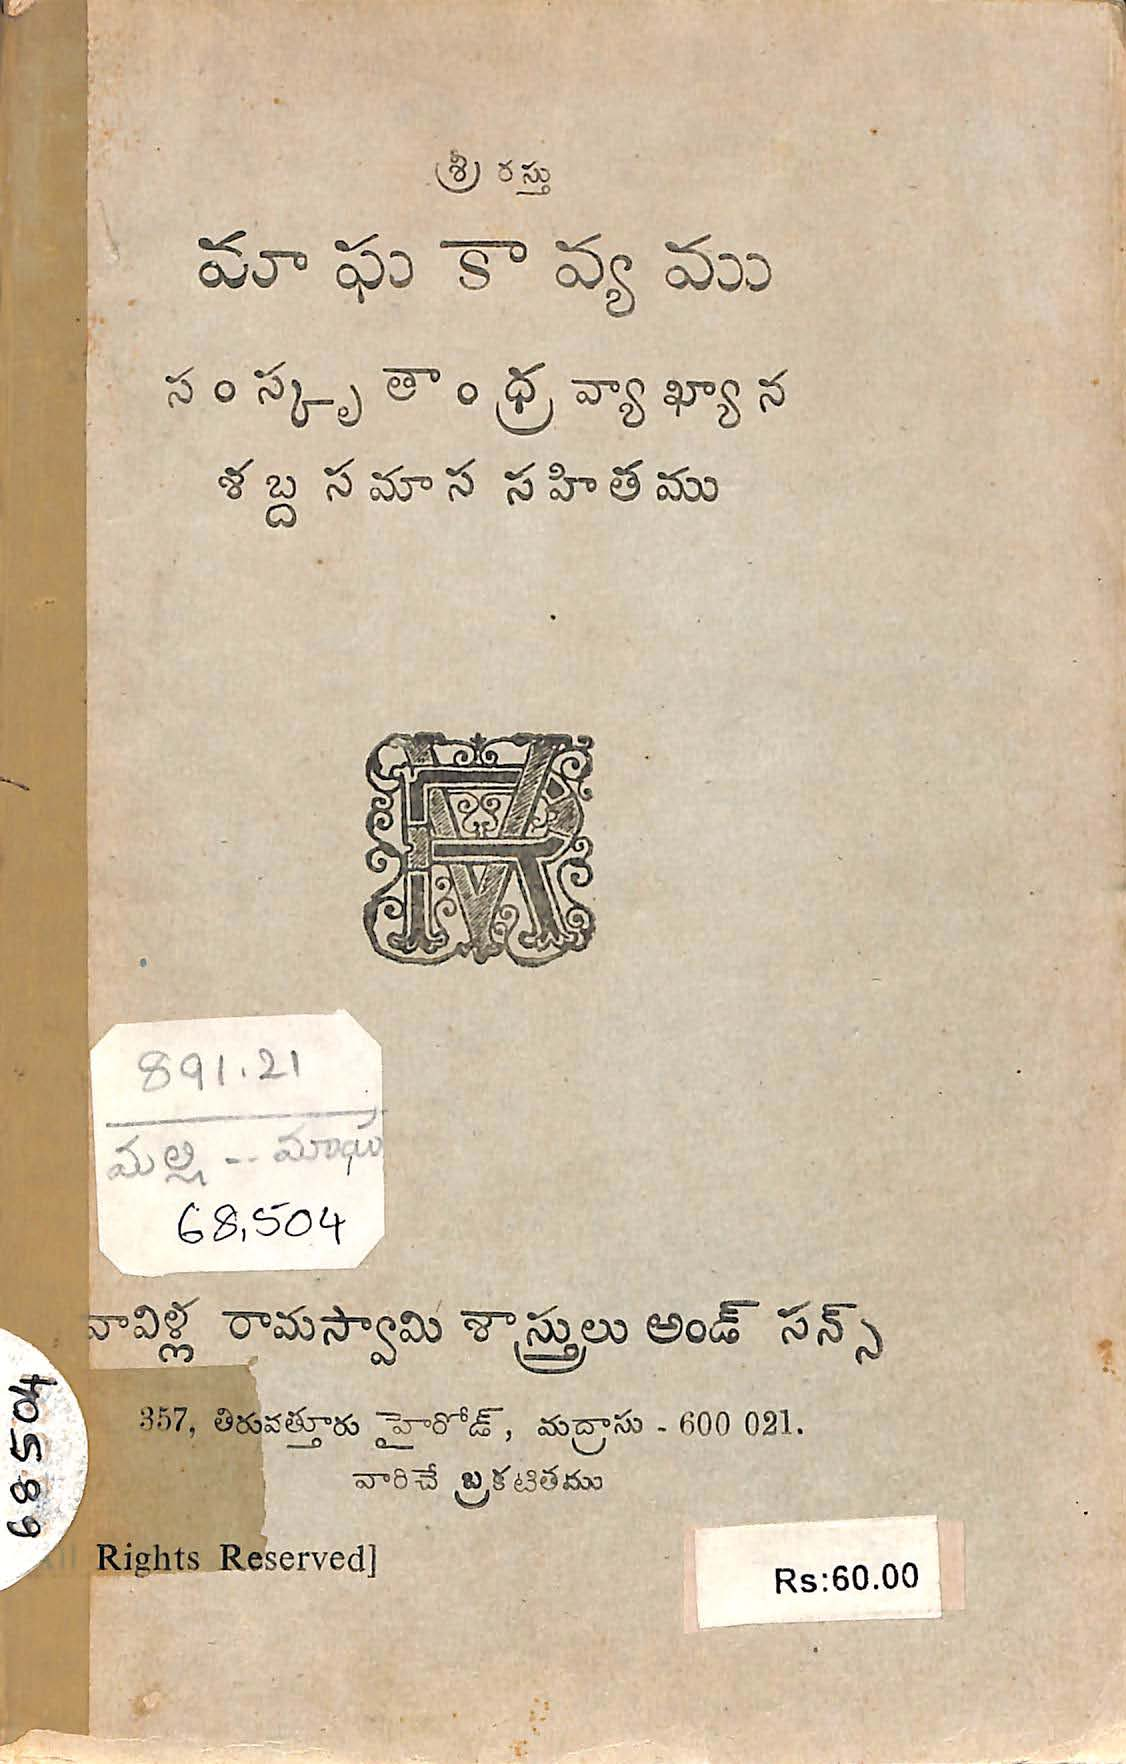 శ్రీ రస్తు
మాఘకావ్యము
సంస్కృతాంధ్రవ్యాఖ్యాన
శబ్దసమాస సహితము
891.21
మల్లి -- మాఘ
68,504
వావిళ్ల రామస్వామి శాస్త్రులు అండ్ సన్స్
68504
357, తిరువత్తూరు హైరోడ్, మద్రాసు - 600 021.
వారిచే బ్రకటితము
All Rights Reserved]
Rs:60.00